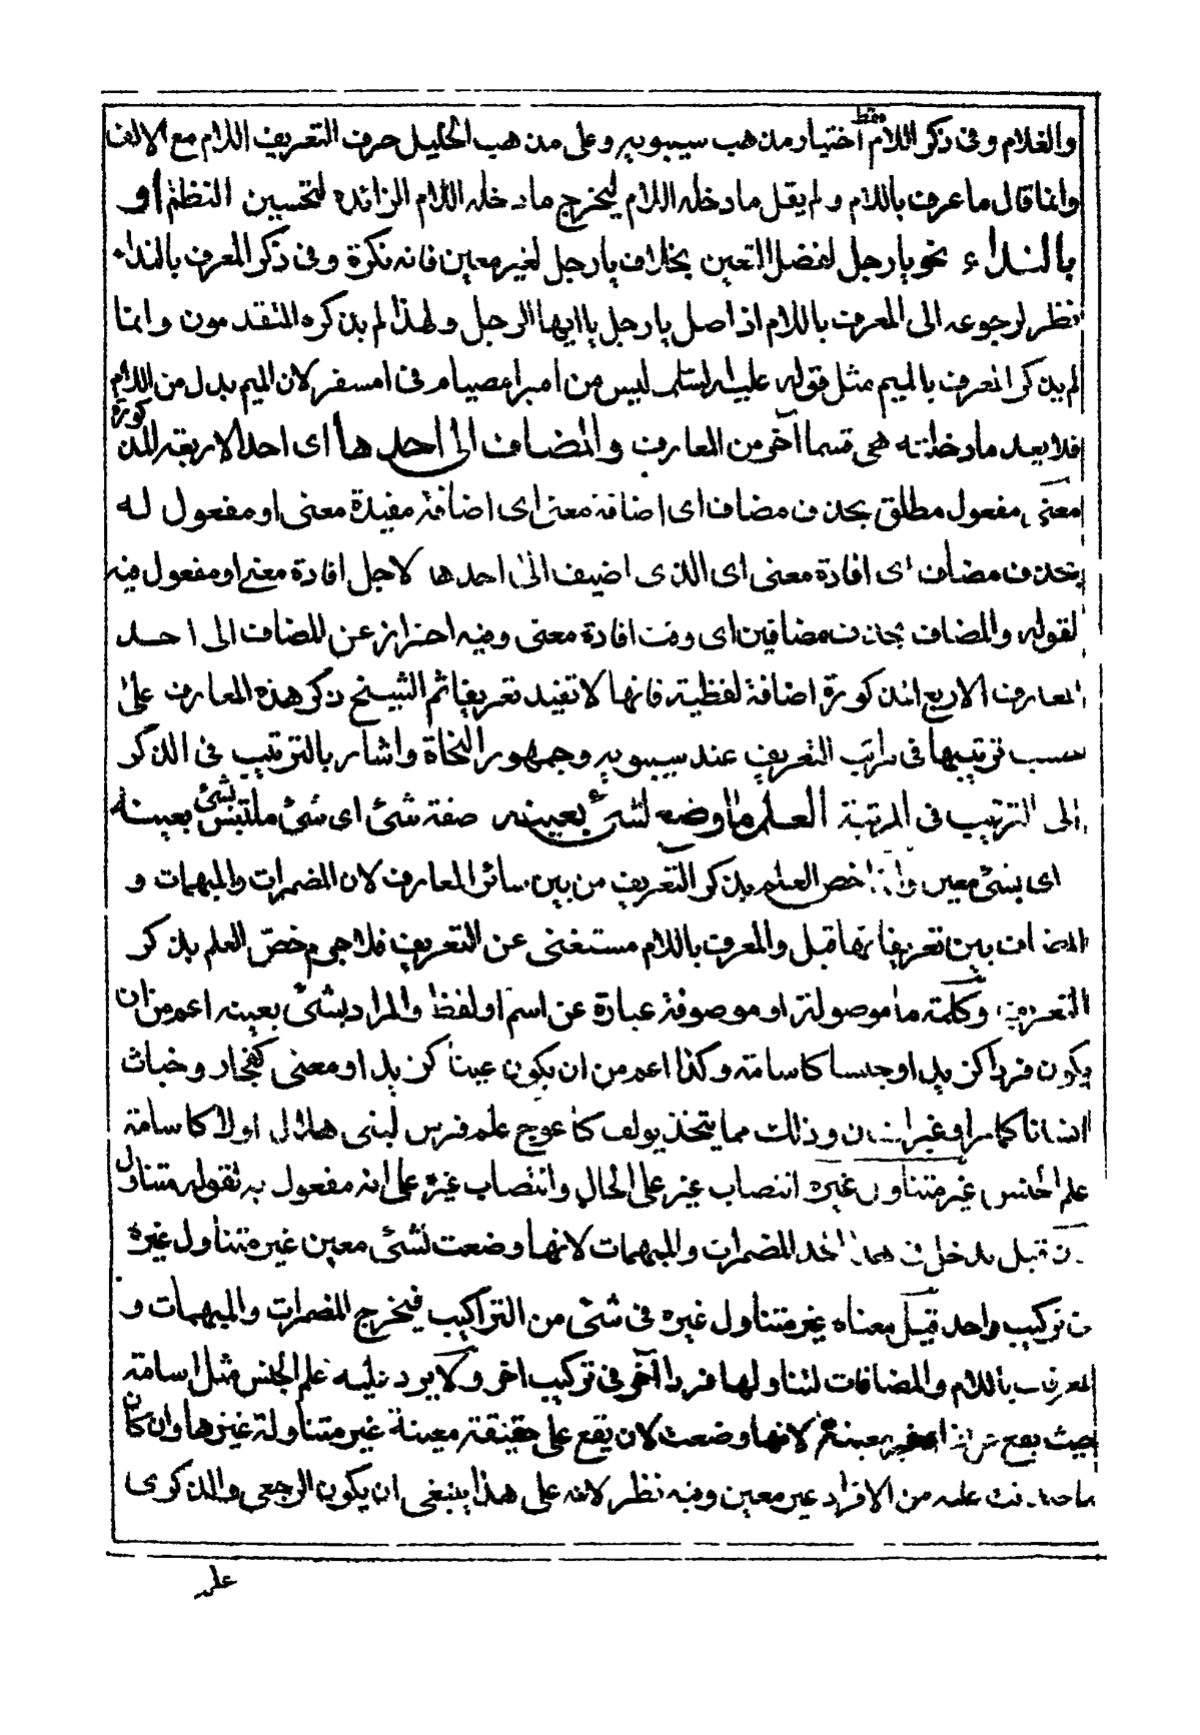 والغلام وفى ذكر اللام فقط اختيار مذهب سيبويه وعلى مذهب الخليل حرف التعريف اللام مع الالف
وانما قال ما عرف باللام ولم يقل ما دخله اللام ليخرج ما دخله اللام الزائدة لتحسين النظم او
بالنداء نحو يا رجل لقصد التعين بخلاف يا رجل لغير معين فانه نكرة وفى ذكر المعرف بالنداء
نظر لرجوعه الى المعرف باللام اذ اصل يا رجل يا ايها الرجل ولهذا لم يذكره المتقدمون وانما
لم يذكر المعرف بالميم مثل قوله عليه السلام ليس من امبر امصيام فى امسفر لان الميم بدل من اللام
فلا يعد ما دخلته هى قسما آخر من المعارف والمضاف الى احدها اى احد الاربعة المذكورة
معنى مفعول مطلق بحذف مضاف اى اضافة معنى اى اضافة مفيدة معنى او مفعول له
بحذف مضاف اى افادة معنى اى الذى اضيف الى احدها لاجل افادة معنى او مفعول فيه
لقوله والمضاف بحذف مضافين اى وقت افادة معنى وفيه احتراز عن المضاف الى احد
المعارف الاربع المذكورة اضافة لفظية فانها لا تفيد تعريفا ثم الشيخ ذكر هذه المعارف على
حسب ترتيبها فى مراتب التعريف عند سيبويه وجمهور النحاة واشار بالترتيب فى الذكر
الى الترتيب فى المرتبة العلم ما وضع لشئ بعينه صفة شئ اى شئ ملتبس بعينه
اى بشئ معين وانما خص العلم بذكر التعريف من بين سائر المعارف لان المضمرات والمبهمات و
المضاف بين تعريفاتها قبل والمعرف باللام مستغنى عن التعريف فلا جرم خص العلم بذكر
التعريف وكلمة ما موصولة او موصوفة عبارة عن اسم او لفظ والمراد بشئ بعينه اعم من ان
يكون فردا كزيد او جنسا كاسامة وكذا اعم من ان يكون عينا كزيد او معنى كفجار وخباث
انسانا كما مر او غير انسان وذلك مما يتخذ يولف كاعوج علم فرس لبنى هلال اولا كاسامة
علم الجنس غير متناول غيره انتصاب غير على الحال وانتصاب غيره على انه مفعول به لقوله متناول
قبل يدخل فى هذا الحد المضمرات والمبهمات لانها وضعت لشئ معين غير متناول غيره
تركيب واحد قيل معناه غير متناول غيره فى شئ من التراكيب فيخرج المضمرات والمبهمات و
المعرفات باللام والمضافات لتناولها فردا آخر فى تركيب اخر ولا يرد عليه علم الجنس مثل اسامة
حيث يقع معينة لانها وضعت لان يقع على حقيقة معينة غير متناولة غيرها وان كان
عليه من الافراد غير معين وفيه نظر لانه على هذا ينبغى ان يكون الرجعى والذكرى
علمـ